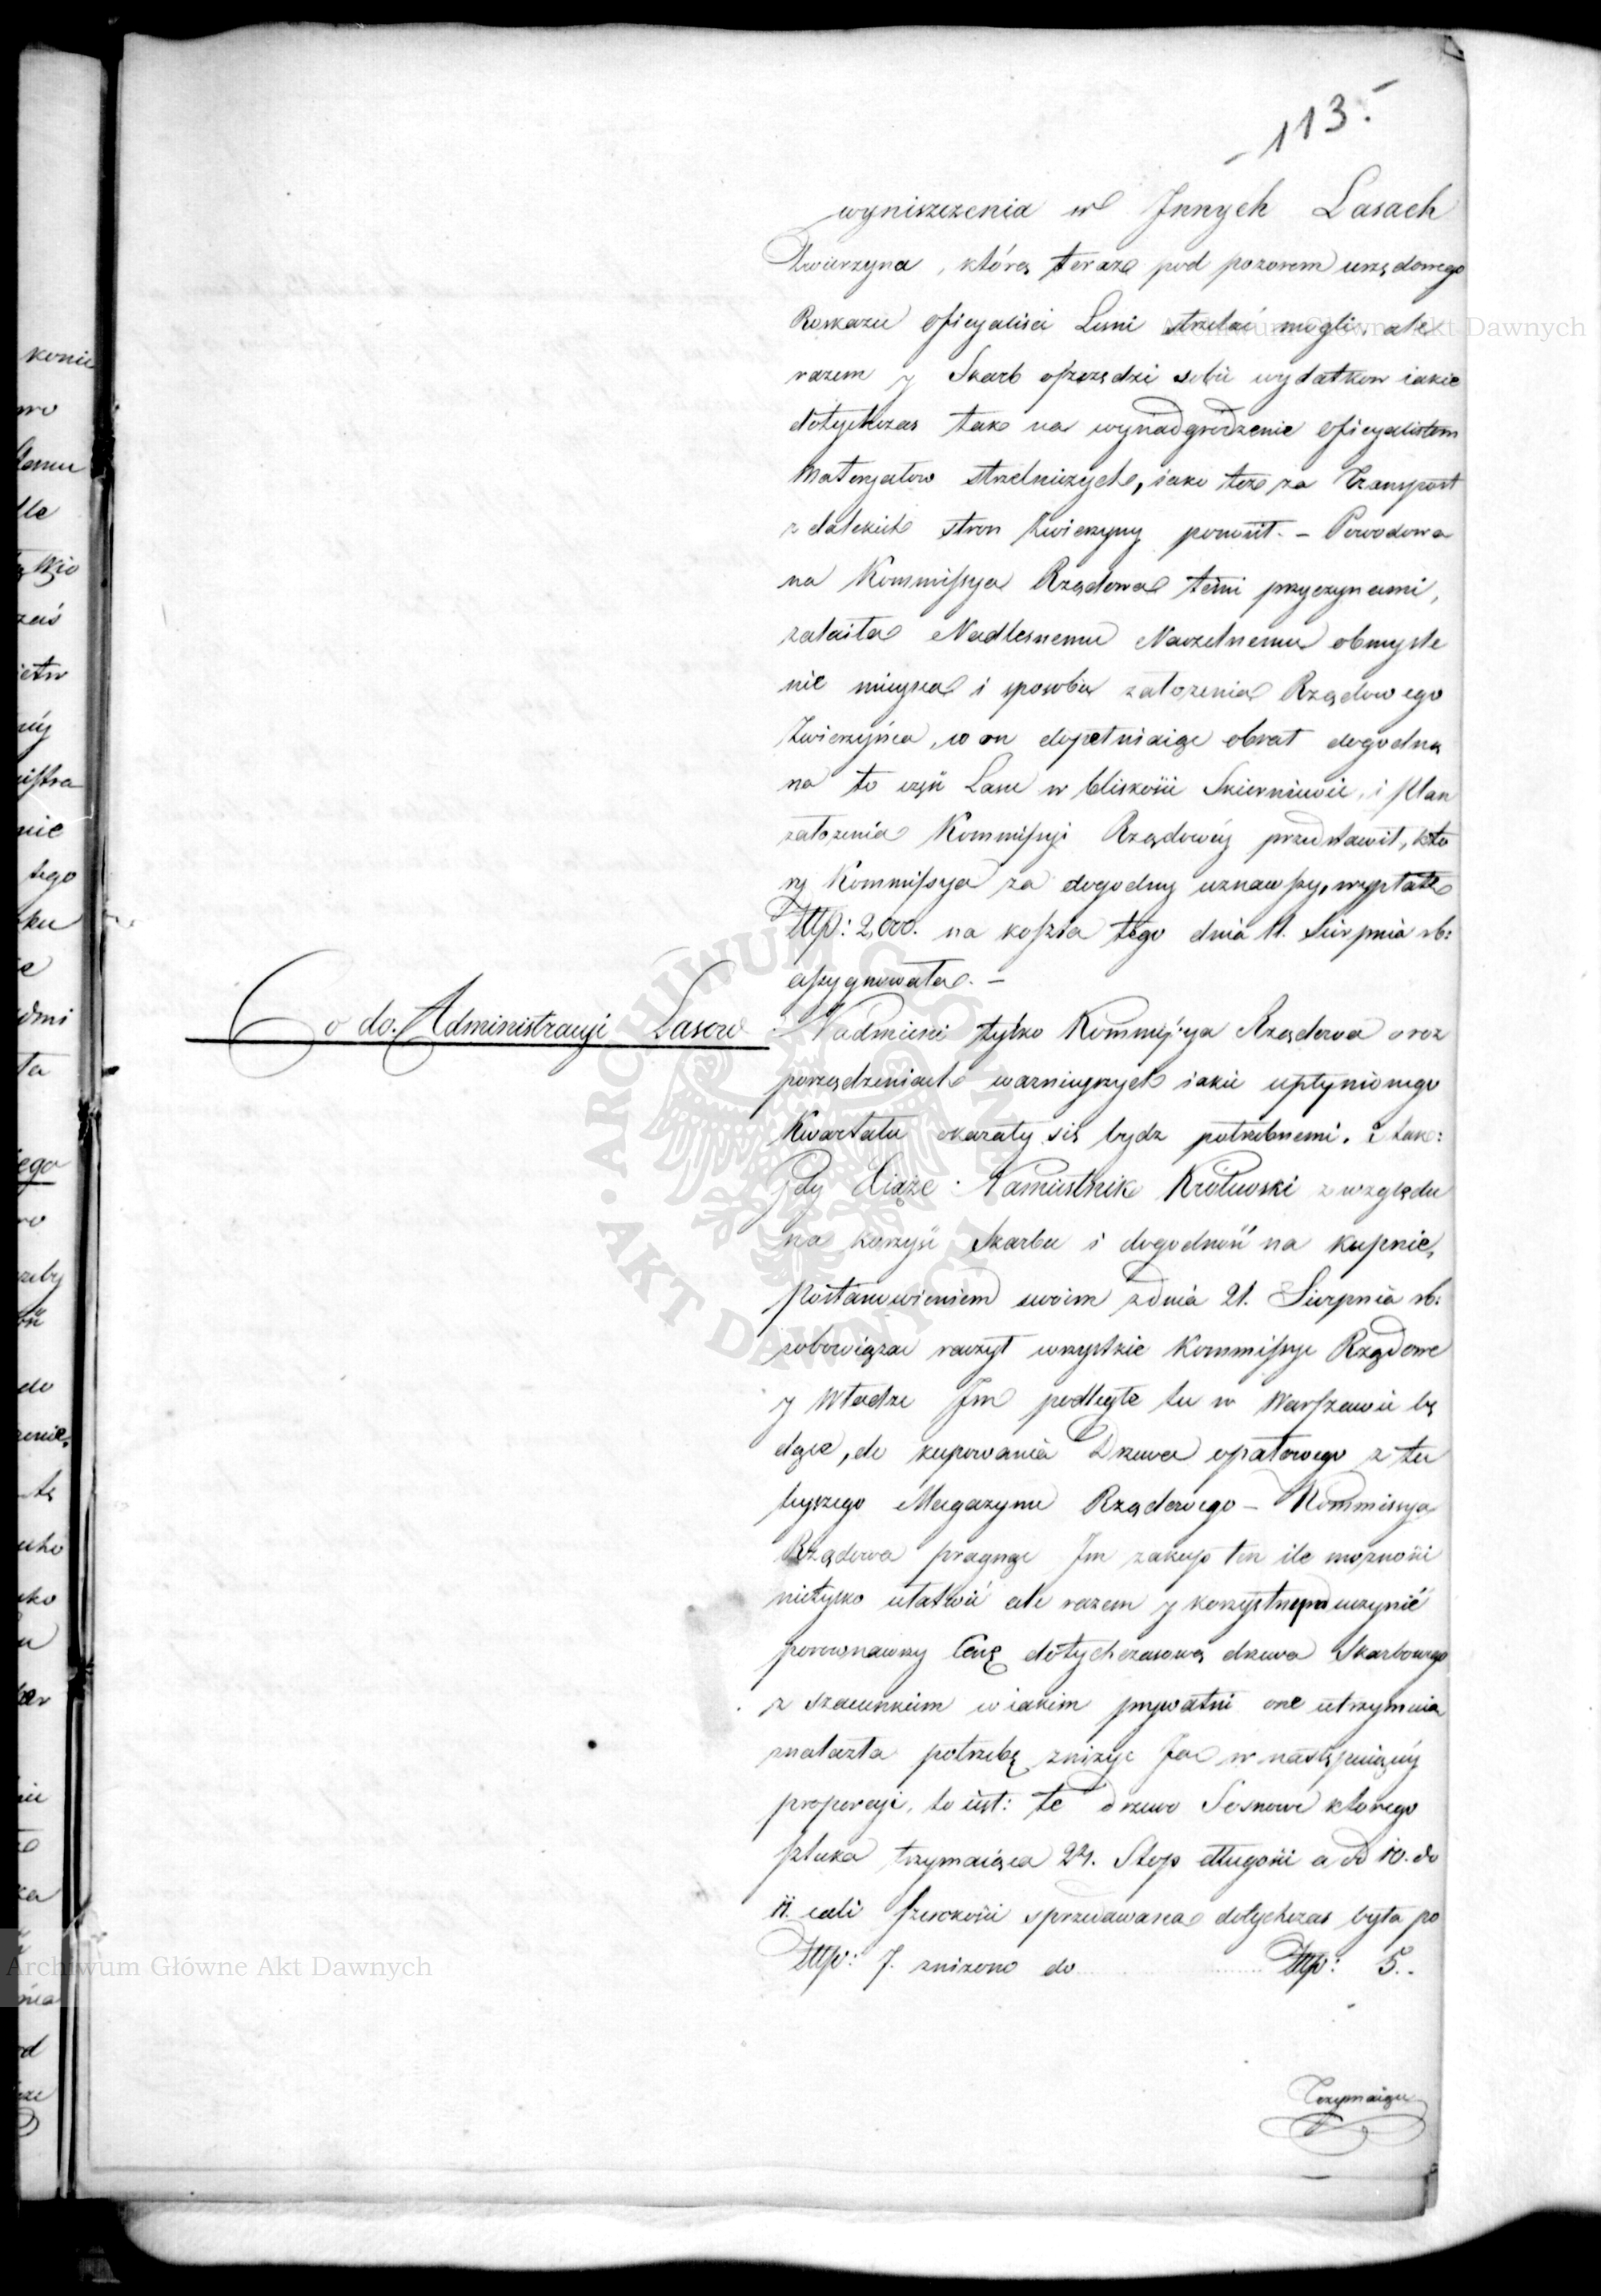 - 113. -
wyniszczenia w Innych Lasach
Zwierzyna, którą teraz pod pozorem urzędowego
Roskazu Oficyaliści Leśni strzelać mogli, ale
razem y Skarb oszczędzi sobie wydatkow iakie
dotychczas tak na wynadgrodzenie Oficyalistom
Materyałow strzelniczych, iako też za Transport
z dalekich stron Zwierzyny ponosił. – Powodowa
na Kommissya Rządowa temi przyczynami,
zaleciła Nadleśnemu Naczelnemu obmyśle
nie mieysca i sposobu założenia Rządowego
Zwierzyńca, w on dopełniaiąc obrał dogodną
na to część Lasu w bliskości Skierniewic, i Plan
założenia Kommissyi Rządowéy przedstawił, któ
ry Kommissya za dogodny uznawszy, wypłatę
Złłp: 2,000. na koszta tego dnia 11. Sierpnia rb:
assygnowała. –
Co do Administracyi Lasow
Nadmieni tylko Kommissya Rządowa o roz
porządzeniach ważnieyszych iakie upłynionego
Kwartału okazały się bydz potrzebnemi. i tak:
Gdy Xiąże Namiestnik Królewski z względu
na korzyść Skarbu i dogodność na kupnie,
Postanowieniem swoim z dnia 21. Sierpnia rb:
zobowiązać raczył wszystkie Kommissye Rządowe
y Władze Im podległe tu w Warszawie bę
dące, do kupowania Drzewa opałowego z tu
teyszego Magazynu Rządowego – Kommissya
Rządowa pragnąc Im zakup ten ile możności
nietylko ułatwić ale razem y korzystnym uczynić
porownawszy Cenę dotychczasową drzewa Skarbowego
z szacunkiem w iakim prywatni one utrzymuią
znalazła potrzebę zniżyć Ja w następuiącéy
proporcyi, to iest: te drzewo Sosnowe ktorego
sztuka trzymaiąca 24. Stop długości a od 10. do
11. cali szerokości sprzedawana dotychczas była po
Złłp: 7. zniżono do ........ Złłp: 5..
Trzymaiącą
Archiwum Główne Akt Dawnych
Archiwum Główne Akt Dawnych
ARCHIWUM GŁÓWNE · AKT DAWNYCH ·